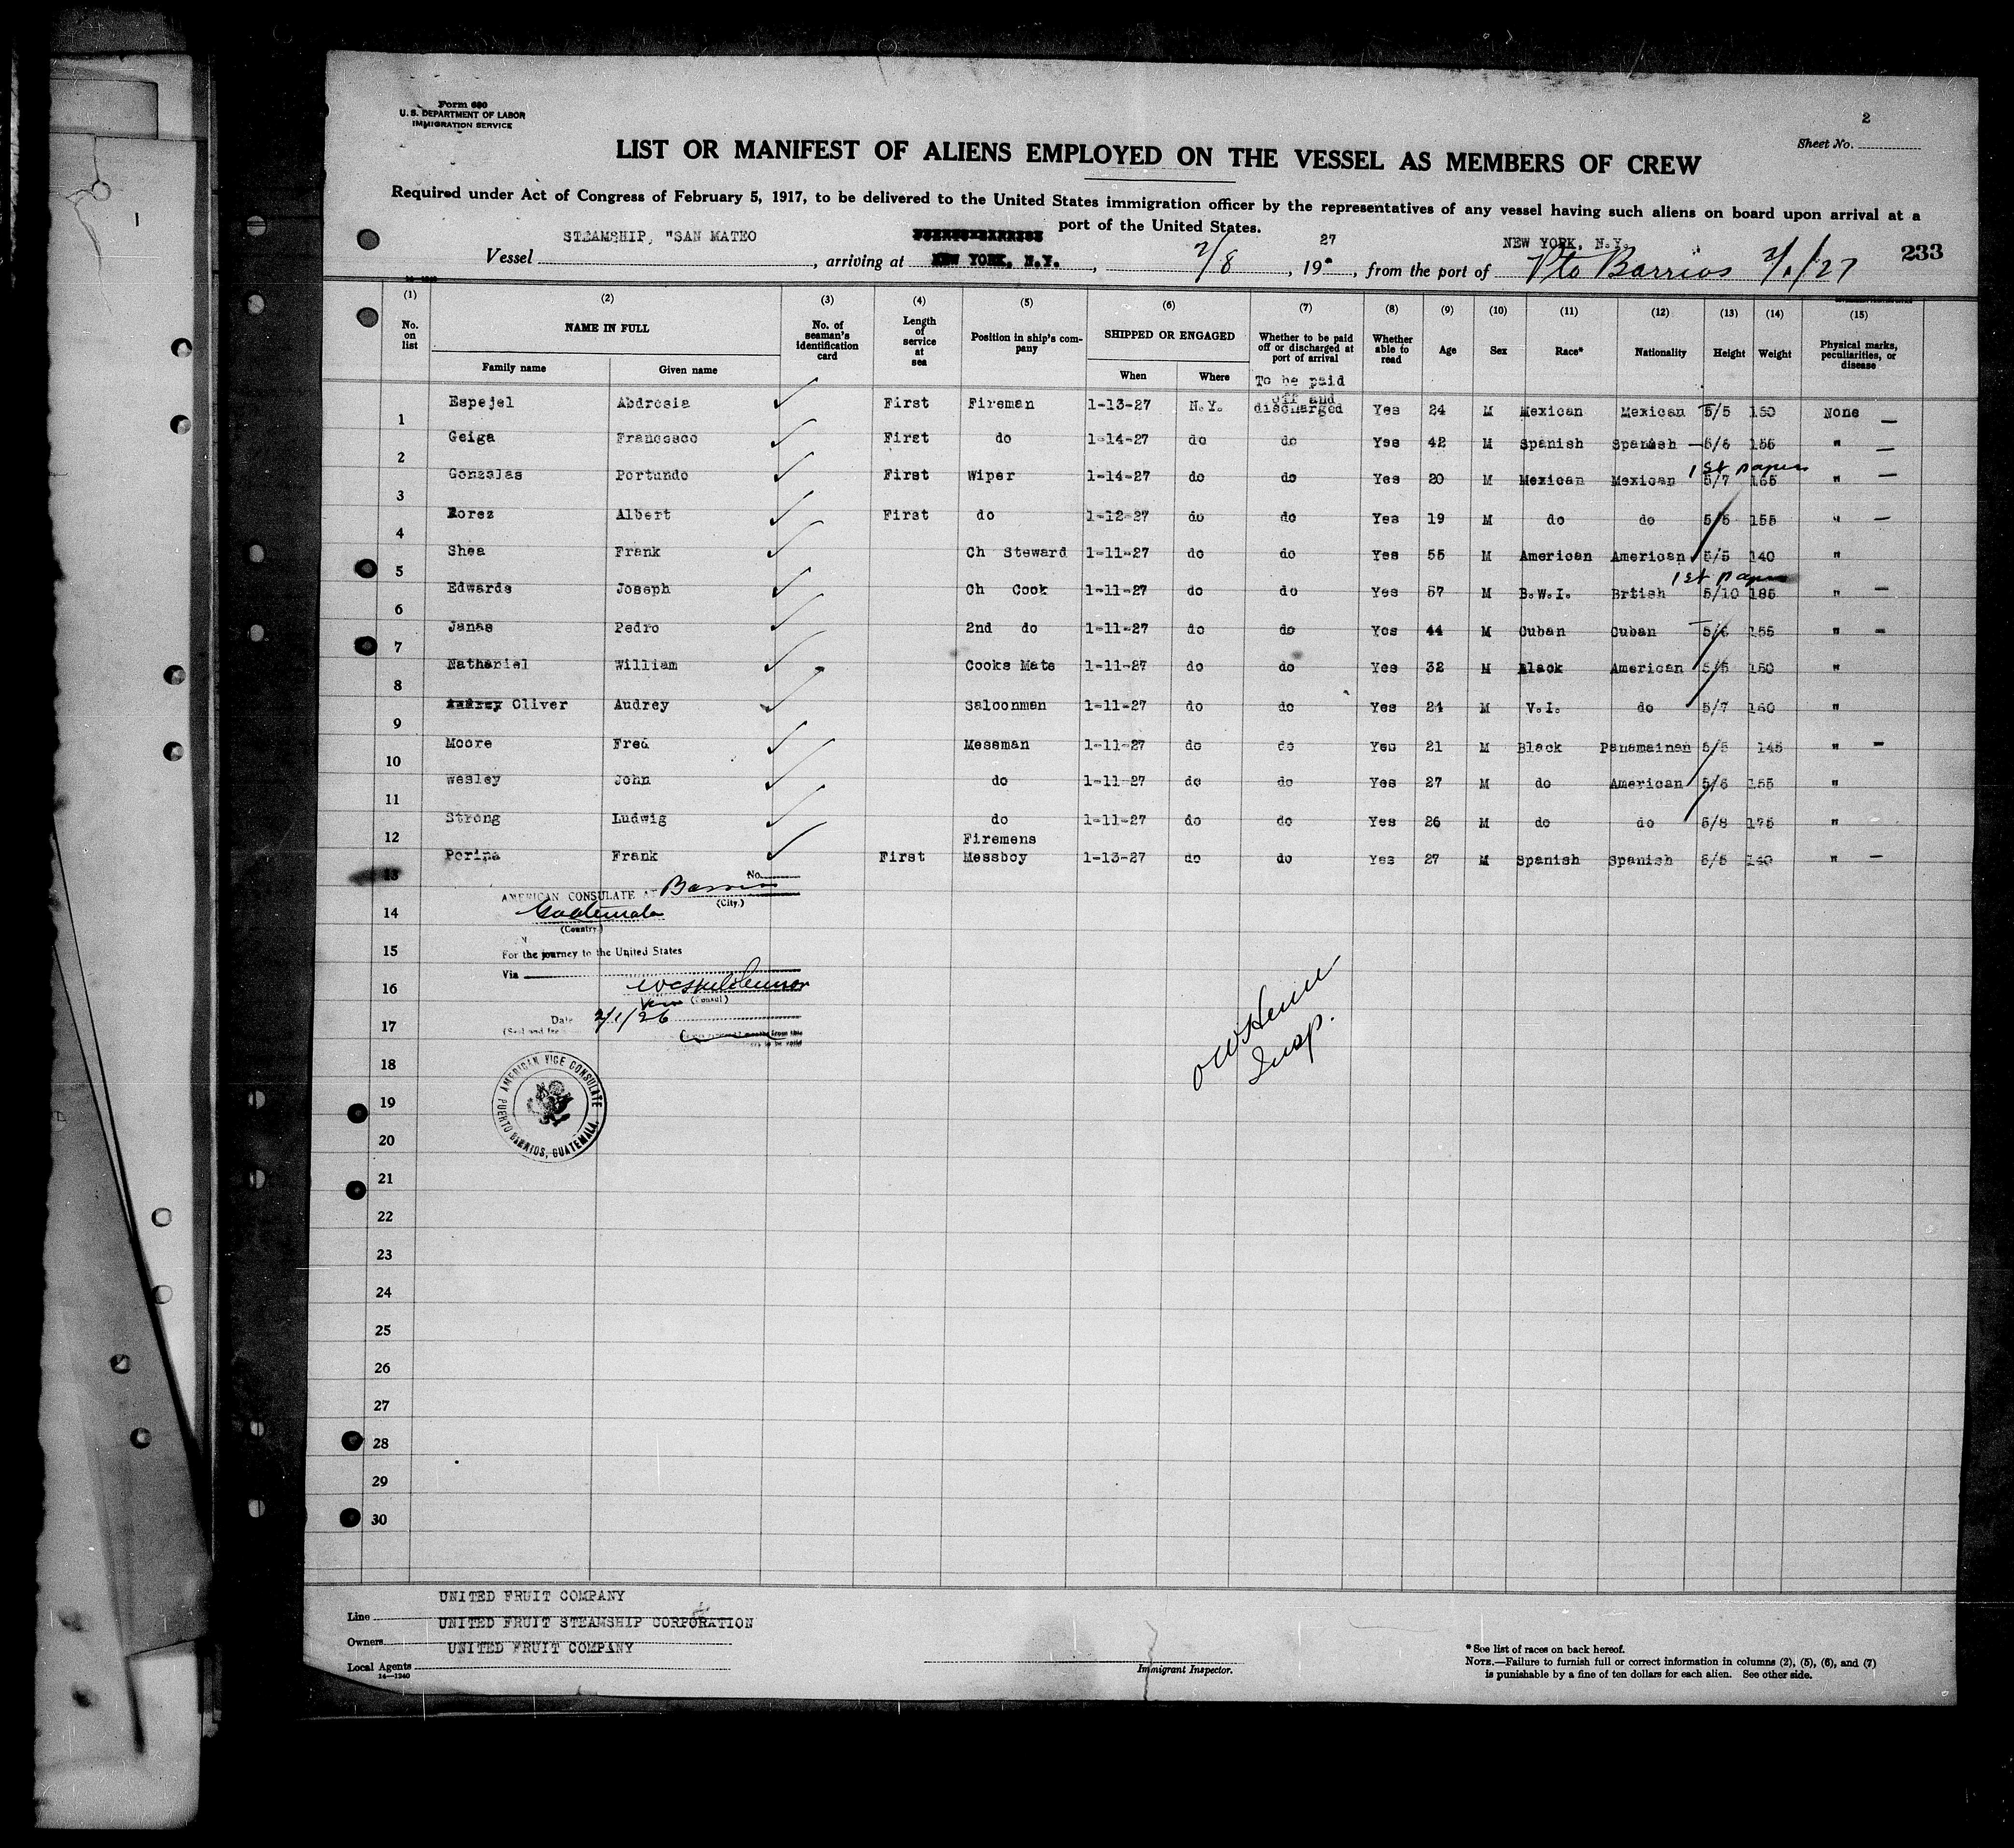 Form 680
U. S. DEPARTMENT OF LABOR
IMMIGRATION SERVICE
2
Sheet No.
LIST OR MANIFEST OF ALIENS EMPLOYED ON THE VESSEL AS MEMBERS OF CREW
Required under Act of Congress of February 5, 1917, to be delivered to the United States immigration officer by the representatives of any vessel having such aliens on board upon arrival at a
port of the United States.
Vessel STEAMSHIP, "SAN MATEO, arriving at NEW YORK, N.Y., 2/8, 1927, from the port of NEW YORK, N.Y. Pto Barrios 2/1/27
233
(1) (2) (3) (4) (5) (6) (7) (8) (9) (10) (11) (12) (13) (14) (15)
No. on list NAME IN FULL No. of seaman's identification card Length of service at sea Position in ship's company SHIPPED OR ENGAGED Whether to be paid off or discharged at port of arrival Whether able to read Age Sex Race* Nationality Height Weight Physical marks, peculiarities, or disease
Family name Given name When Where
1 Espejel Abdrosia First Fireman 1-13-27 N.Y. To be paid off and discharged Yes 24 M Mexican Mexican 5/5 150 None —
2 Geiga Francesco First do 1-14-27 do do Yes 42 M Spanish Spanish 5/6 155 " —
1st papers
3 Gonzalas Portundo First Wiper 1-14-27 do do Yes 20 M Mexican Mexican 5/7 165 " —
4 Lorez Albert First do 1-12-27 do do Yes 19 M do do 5/6 155 " —
5 Shea Frank Ch Steward 1-11-27 do do Yes 55 M American American 5/5 140 "
1st papers
6 Edwards Joseph Ch Cook 1-11-27 do do Yes 57 M B.W.I. Brtish 5/10 185 " —
7 Janas Pedro 2nd do 1-11-27 do do Yes 44 M Cuban Cuban 5/6 155 " —
8 Nathaniel William Cooks Mate 1-11-27 do do Yes 32 M Black American 5/5 150 "
9 Oliver Audrey Saloonman 1-11-27 do do Yes 24 M V.I. do 5/7 160 "
10 Moore Fred Messman 1-11-27 do do Yes 21 M Black Panamainan 5/5 145 " —
11 Wesley John do 1-11-27 do do Yes 27 M do American 5/6 155 "
12 Strong Ludwig do 1-11-27 do do Yes 26 M do do 5/8 175 "
13 Perina Frank First Firemens Messboy 1-13-27 do do Yes 27 M Spanish Spanish 5/5 140 " —
No.
AMERICAN CONSULATE AT Barrios
(City.)
14
Guatemala
(Country)
15
For the journey to the United States
Via
16
Vice (Consul)
17
Date 2/1/26
18
AMERICAN VICE CONSULATE
PUERTO BARRIOS, GUATEMALA.
Insp.
19
20
21
22
23
24
25
26
27
28
29
30
Line UNITED FRUIT COMPANY
Owners UNITED FRUIT STEAMSHIP CORPORATION
Local Agents UNITED FRUIT COMPANY
14—1240
Immigrant Inspector.
* See list of races on back hereof.
NOTE.—Failure to furnish full or correct information in columns (2), (5), (6), and (7)
is punishable by a fine of ten dollars for each alien. See other side.